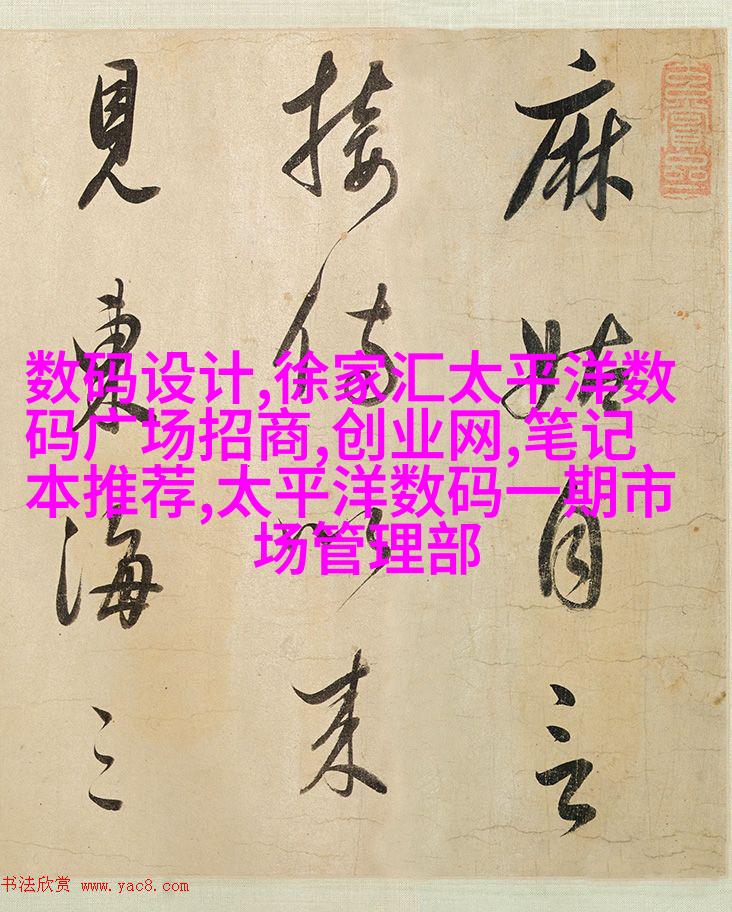 麻姑自言
接侍以来
見東海三
数码设计,徐家汇太平洋数
码广场招商,创业网,笔记
本推荐,太平洋数码一期市
场管理部
书法欣赏 www.yac8.com